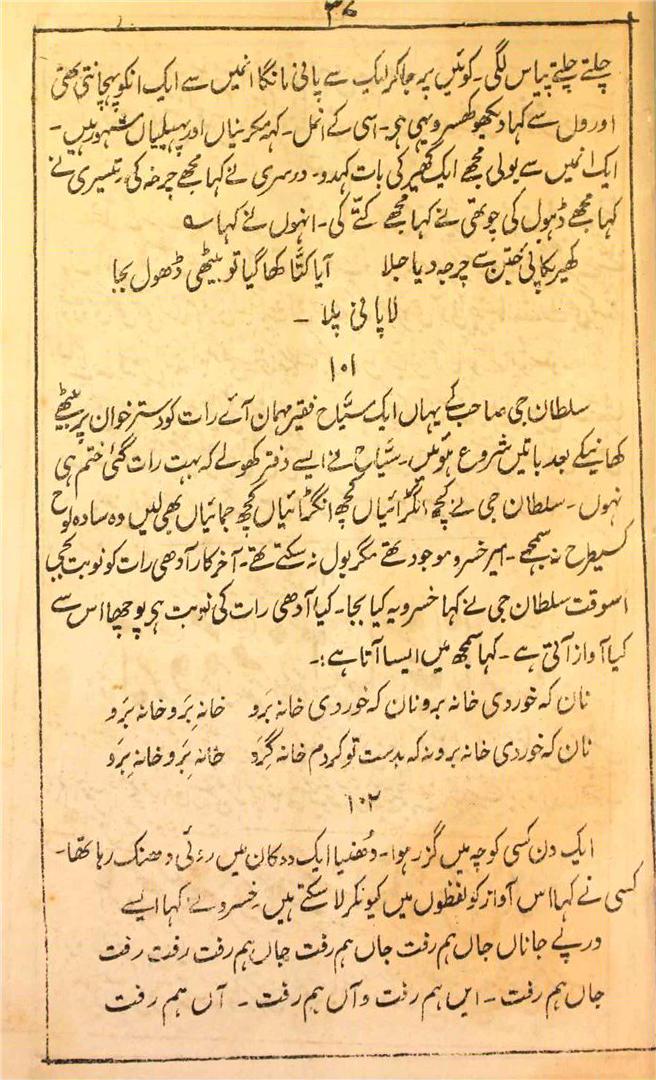 ۳۷
چلتے چلتے پیاس لگی۔ کوئیں پر جا کر ایک سے پانی مانگا انمیں سے ایک انکو پہچانتی تھی
اورول سے کہا دیکھو کھسرو یہی ہی۔ اسی کے انمل۔ کہہ مکرنیاں اور پہیلیاں مشہور ہیں۔
ایک انمیں سے بولی مجھے ایک کھیر کی بات کہدو۔ دوسری نے کہا مجھے چرخہ کی۔ تیسری نے
کہا مجھے ڈہول کی چوتھی نے کہا مجھے کتّے کی۔ انہوں نے کہا ؎
کھیر پکائی جتن سے چرخہ دیا جلا آیا کتّا کھا گیا تو بیٹھی ڈھول بجا
لا پانی پلا ۔
۱۰۱
سلطان جی صاحب کے یہاں ایک سیّاح فقیر مہمان آئے رات کو دسترخوان پر بیٹھے
کھانیکے بعد باتیں شروع ہوئیں۔ سیّاح نے ایسے دفتر کھولے کہ بہت رات گئی ختم ہی
نہوں۔ سلطان جی نے کچھ انگڑائیاں کچھ انگڑائیاں کچھ جمائیاں بھی لیں وہ سادہ لوح
کسیطرح نہ سمجھے۔ امیر خسرو موجود تھے مگر بول نہ سکتے تھے۔ آخرکار آدھی رات کو نوبت بجی
اسوقت سلطان جی نے کہا خسرو یہ کیا بجا۔ کہا آدھی رات کی نوبت ہی پوچھا اس سے
کیا آواز آتی ہے۔ کہا سمجھ میں ایسا آتا ہے:۔
نان کہ خوردی خانہ برو نان کہ خوردی خانہ بَرو خانہ بِرَو خانہ بِرَو
نان کہ خوردی خانہ برو نہ کہ بدست تو کردم خانہ گِرَو خانہ بِرَو خانہ بِرَو
۱۰۲
ایک دن کسی کوچہ میں گزر ہوا۔ دُھنیا ایک دوکان میں روئی دھنک رہا تھا۔
کسی نے کہا اس آواز کو لفظوں میں کیونکر لا سکتے ہیں۔ خسرو نے کہا ایسے
درپے جاناں جاں ہم رفت جاں ہم رفت جاں ہم رفت رفت رفت
جاں ہم رفت ۔ ایں ہم رفت و آں ہم رفت ۔ آں ہم رفت